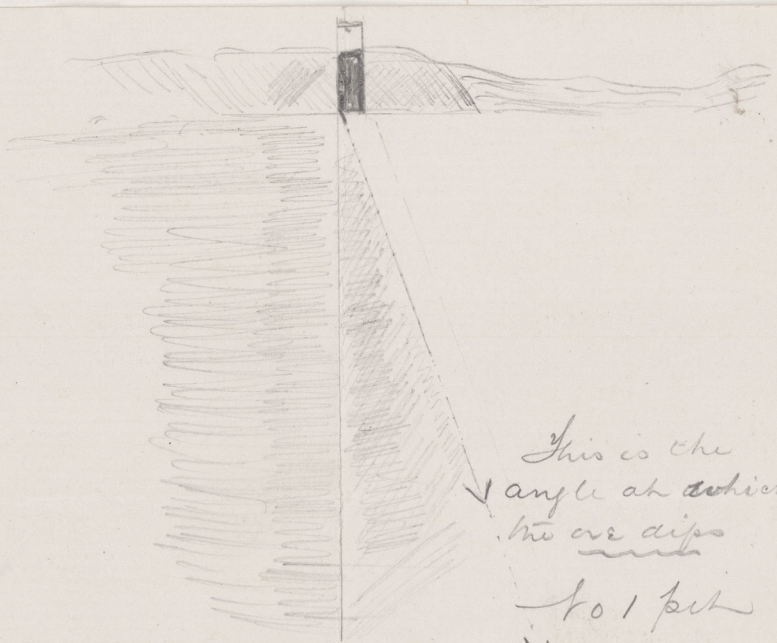 This is the
angle at which
the ore dips
No 1 pit